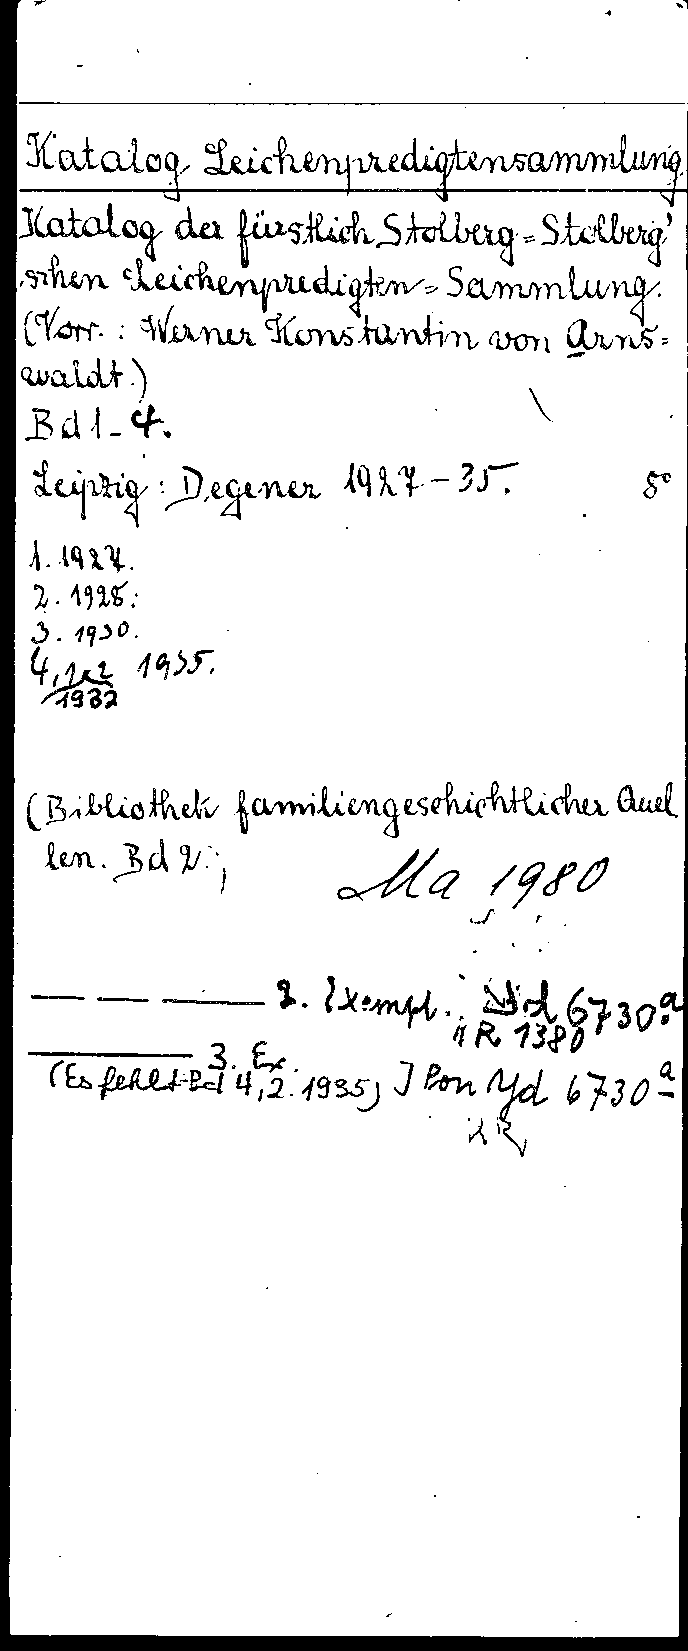 Katalog Leichenpredigtensammlung
Katalog der fürstlich Stolberg=Stolberg'
schen Leichenpredigten=Sammlung.
(Vorr.: Werner Konstantin von Arns=
waldt.)
Bd 1-4.
Leipzig: Degener 1927-35. 8°
1. 1927.
2. 1928.
3. 1930.
4,1.2 1935.
1932
(Bibliothek familiengeschichtlicher Quel
len. Bd 2.;
Ma 1980
2. Exempl. 6730a
R 1380
3. Ex.
(Es fehlt Bd 4,2. 1935) Pon Yd 6730a